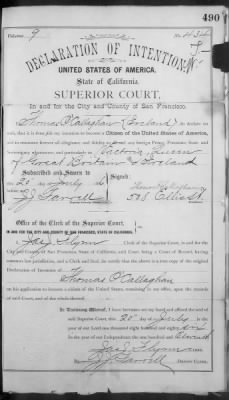 490
Volume 9
No. 434
DECLARATION OF INTENTION,
UNITED STATES OF AMERICA,
State of California.
SUPERIOR COURT,
In and for the City and County of San Francisco.
Thomas O'Callaghan (England) do declare on
oath, that it is bona fide my intention to become a Citizen of the United States of America,
and to renounce forever all allegiance and fidelity to all and any foreign Prince, Potentate, State and
Sovereignty whatsoever, and particularly to Victoria Queen
of Great Britain & Ireland
Subscribed and Sworn to
this 20 day of July
Signed:
Thomas O'Callaghan
508 Ellis St
Office of the Clerk of the Superior Court,
IN AND FOR THE CITY AND COUNTY OF SAN FRANCISCO, STATE OF CALIFORNIA.
I, Jas J. Flynn Clerk of the Superior Court, in and for the
City and County of San Francisco, State of California, said Court being a Court of Record having
common law jurisdiction, and a Clerk and Seal, do certify that the above is a true copy of the original
Declaration of Intention of
Thomas O'Callaghan
on his application to become a citizen of the United States, remaining in my office, upon the records
of said Court, and of the whole thereof.
In Testimony Whereof, I have hereunto set my hand and affixed the seal of
said Superior Court, this 20 day of July in the
year of our Lord one thousand eight hundred and eighty six
year of our Independence the one hundred and eleventh
Clerk.
By
Deputy Clerk.